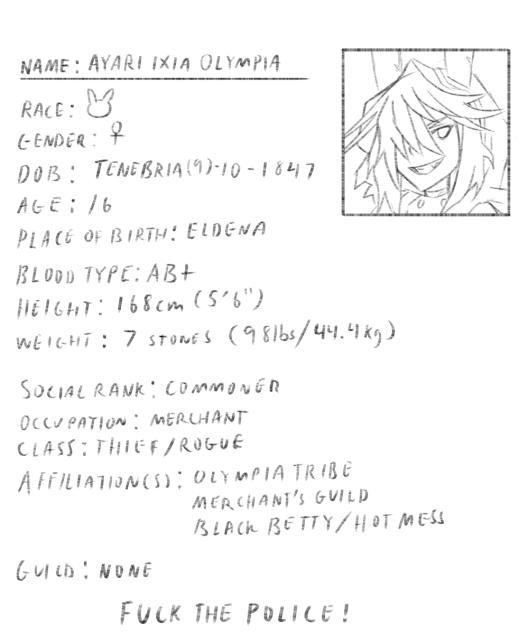 NAME: AYARI IXIA OLYMPIA
RACE:
GENDER: ♀
DOB: TENEBRIA(9)-10-1847
AGE: 16
PLACE OF BIRTH: ELDENA
BLOOD TYPE: AB+
HEIGHT: 168cm (5'6")
WEIGHT: 7 STONES (98lbs/44.4kg)
SOCIAL RANK: COMMONER
OCCUPATION: MERCHANT
CLASS: THIEF/ROGUE
AFFILIATION(S): OLYMPIA TRIBE
MERCHANT'S GUILD
BLACK BETTY/HOT MESS
GUILD: NONE
FUCK THE POLICE!